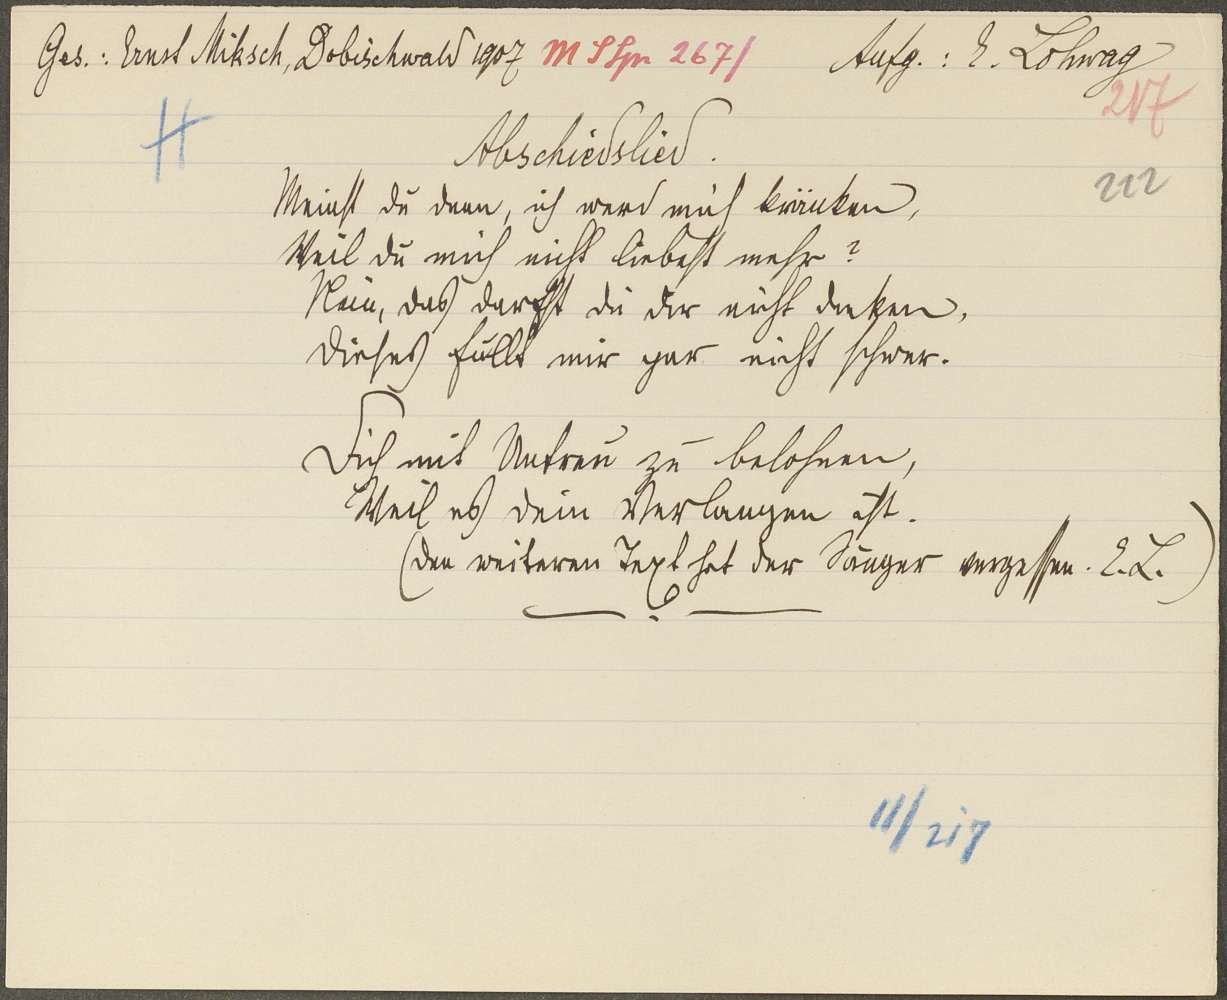 Ges.: Ernst Miksch, Dobischwald 1907 M S Spr 267/ Aufg.: E. Lohwag
217
H
Abschiedslied.
222
Meinst du denn, ich werd mich kränken,
Weil du mich nicht liebest mehr?
Nein, das darfst du dir nicht denken,
Dieses fällt mir gar nicht schwer.
Dich mit Untreu zu belohnen,
Weil es dein Verlangen ist.
(Den weiteren Text hat der Sänger vergessen. E. L.)
11/217